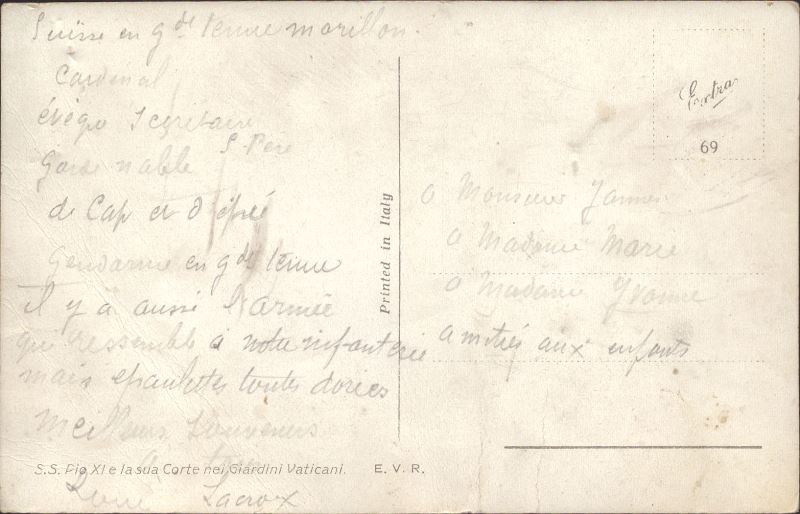 Suisse en gde tenue morillon.
Cardinal
évèque Secrétaire
S. Père
Garde nable
de Cap et d'épée
Gendarme en gde tenue
il y a aussi l'armée
qui ressemble à notre infanterie
mais épaulettes toutes dorées
Meilleurs Souvenirs
a tous
René Lacrox
S.S. Pio XI e la sua Corte nei Giardini Vaticani. E. V. R.
Printed in Italy
Extra
69
a Monsieur
a Madame Marie
a Madame Yvonne
amitiés aux enfants